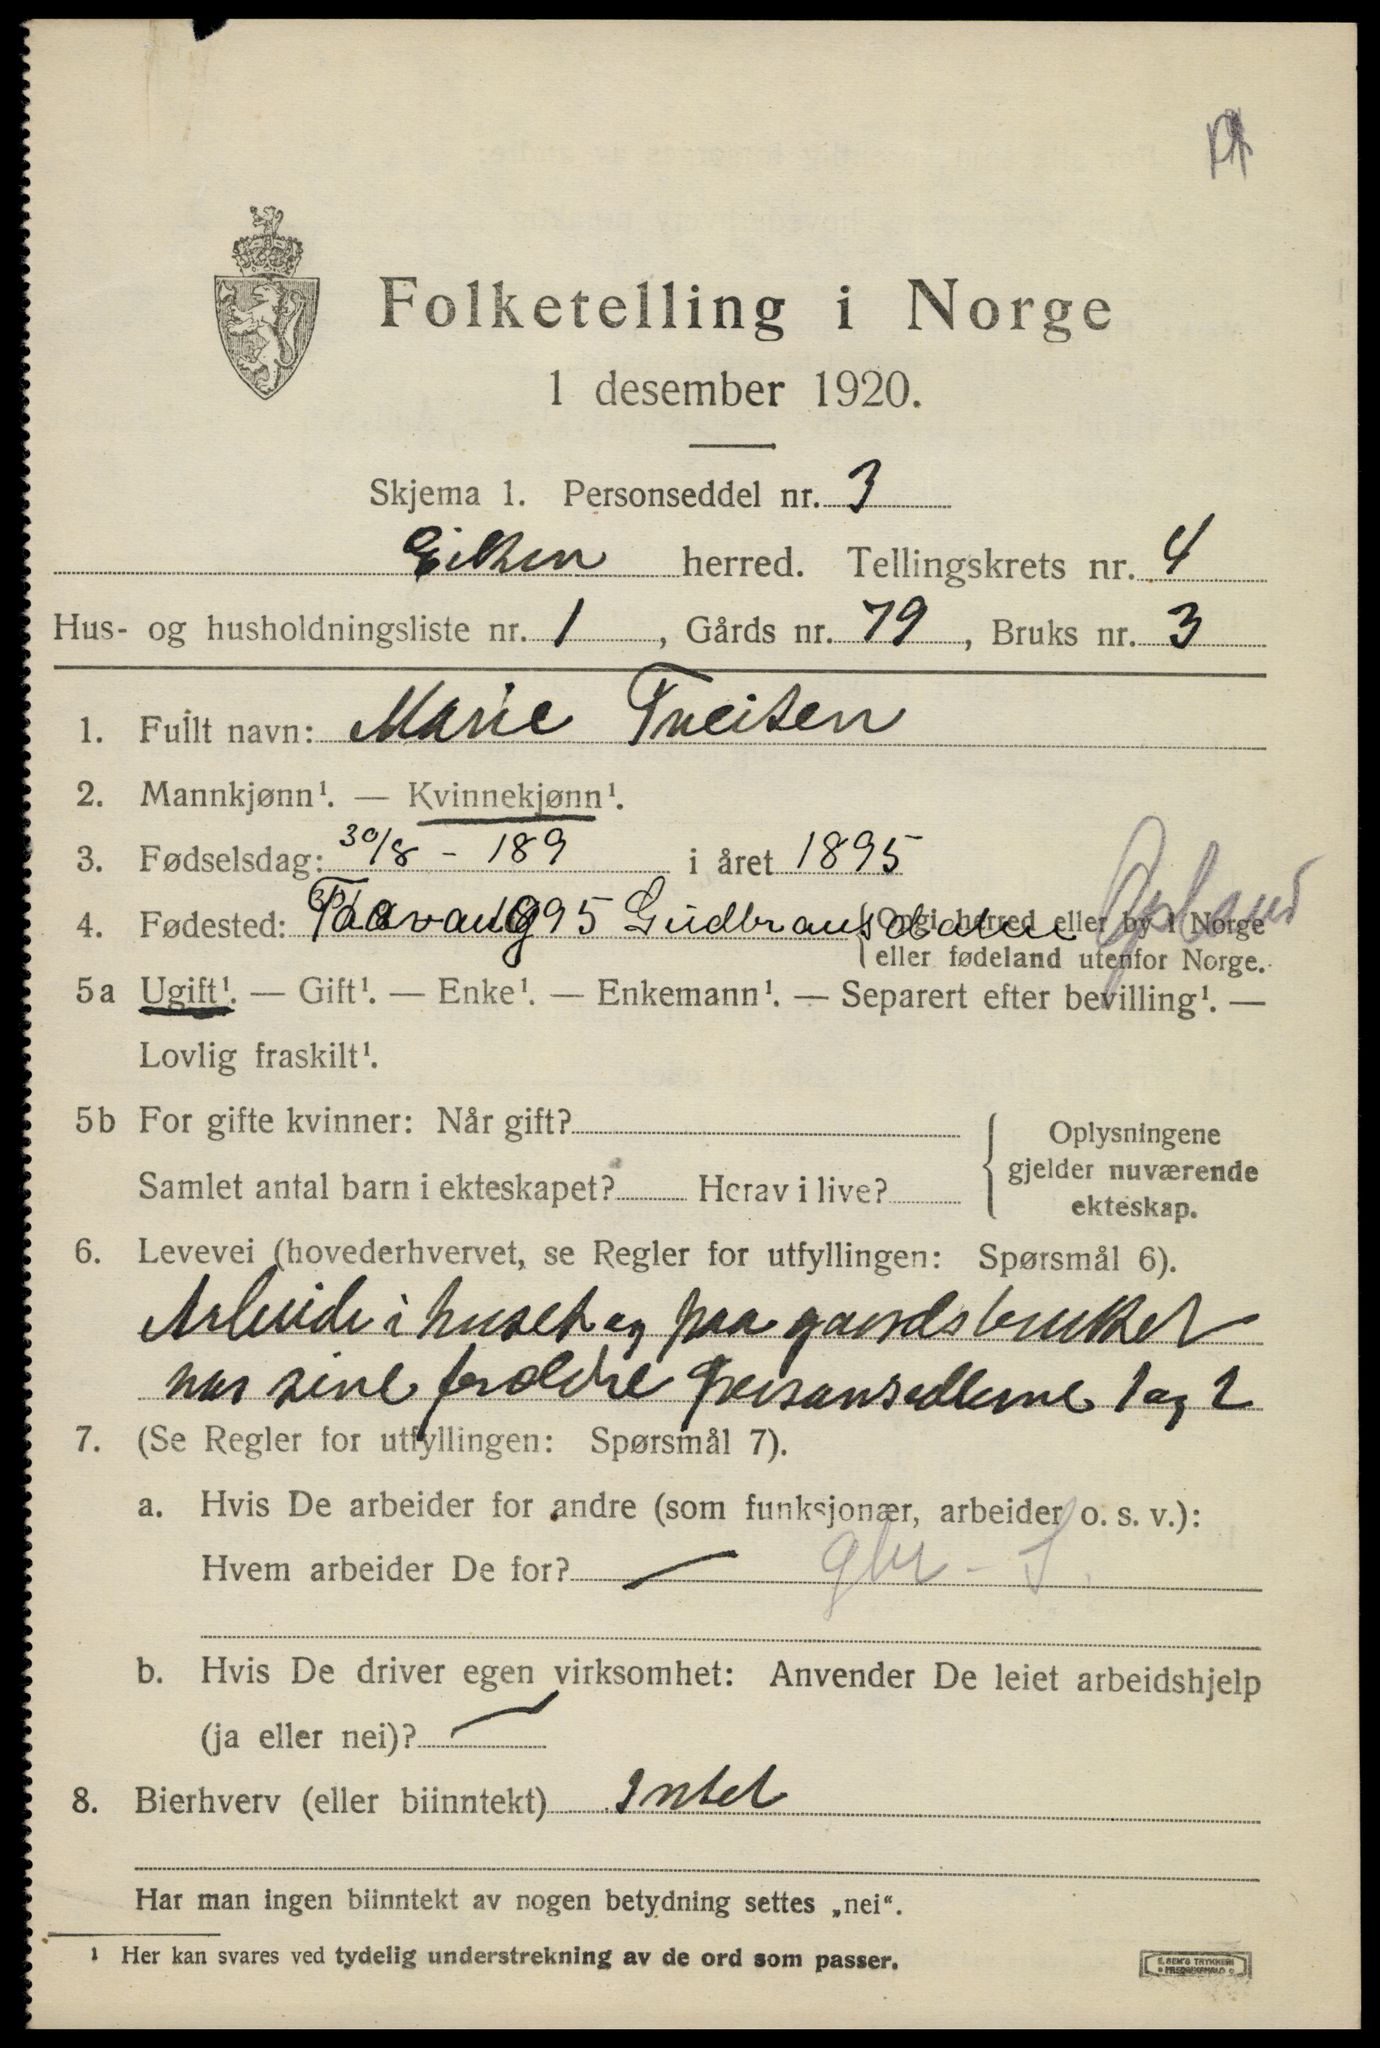 Folketelling i Norge
1 desember 1920.
Skjema 1. Personseddel nr. 3
Eiken herred. Tellingskrets nr. 4
Hus- og husholdningsliste nr. 1, Gårds nr. 79, Bruks nr. 3
1. Fullt navn: Marie Tveiten
2. Mannkjønn¹. — Kvinnekjønn¹.
3. Fødselsdag: 30/8 - 189 i året 1895
4. Fødested: Gudbransdalen {Opgi herred eller by i Norge
eller fødeland utenfor Norge.
5a Ugift¹. — Gift¹. — Enke¹. — Enkemann¹. — Separert efter bevilling¹. —
Lovlig fraskilt¹.
5b For gifte kvinner: Når gift?
Samlet antal barn i ekteskapet? Herav i live?
Oplysningene
gjelder nuværende
ekteskap.
6. Levevei (hovederhvervet, se Regler for utfyllingen: Spørsmål 6).
Arbeide i huset og paa gaardsbruket
hos sine foreldre Personsedlerne 1 og 2
7. (Se Regler for utfyllingen: Spørsmål 7).
a. Hvis De arbeider for andre (som funksjonær, arbeider o. s. v.):
Hvem arbeider De for? —
b. Hvis De driver egen virksomhet: Anvender De leiet arbeidshjelp
(ja eller nei)? —
8. Bierhverv (eller biinntekt) Intet
Har man ingen biinntekt av nogen betydning settes „nei“.
¹ Her kan svares ved tydelig understrekning av de ord som passer.